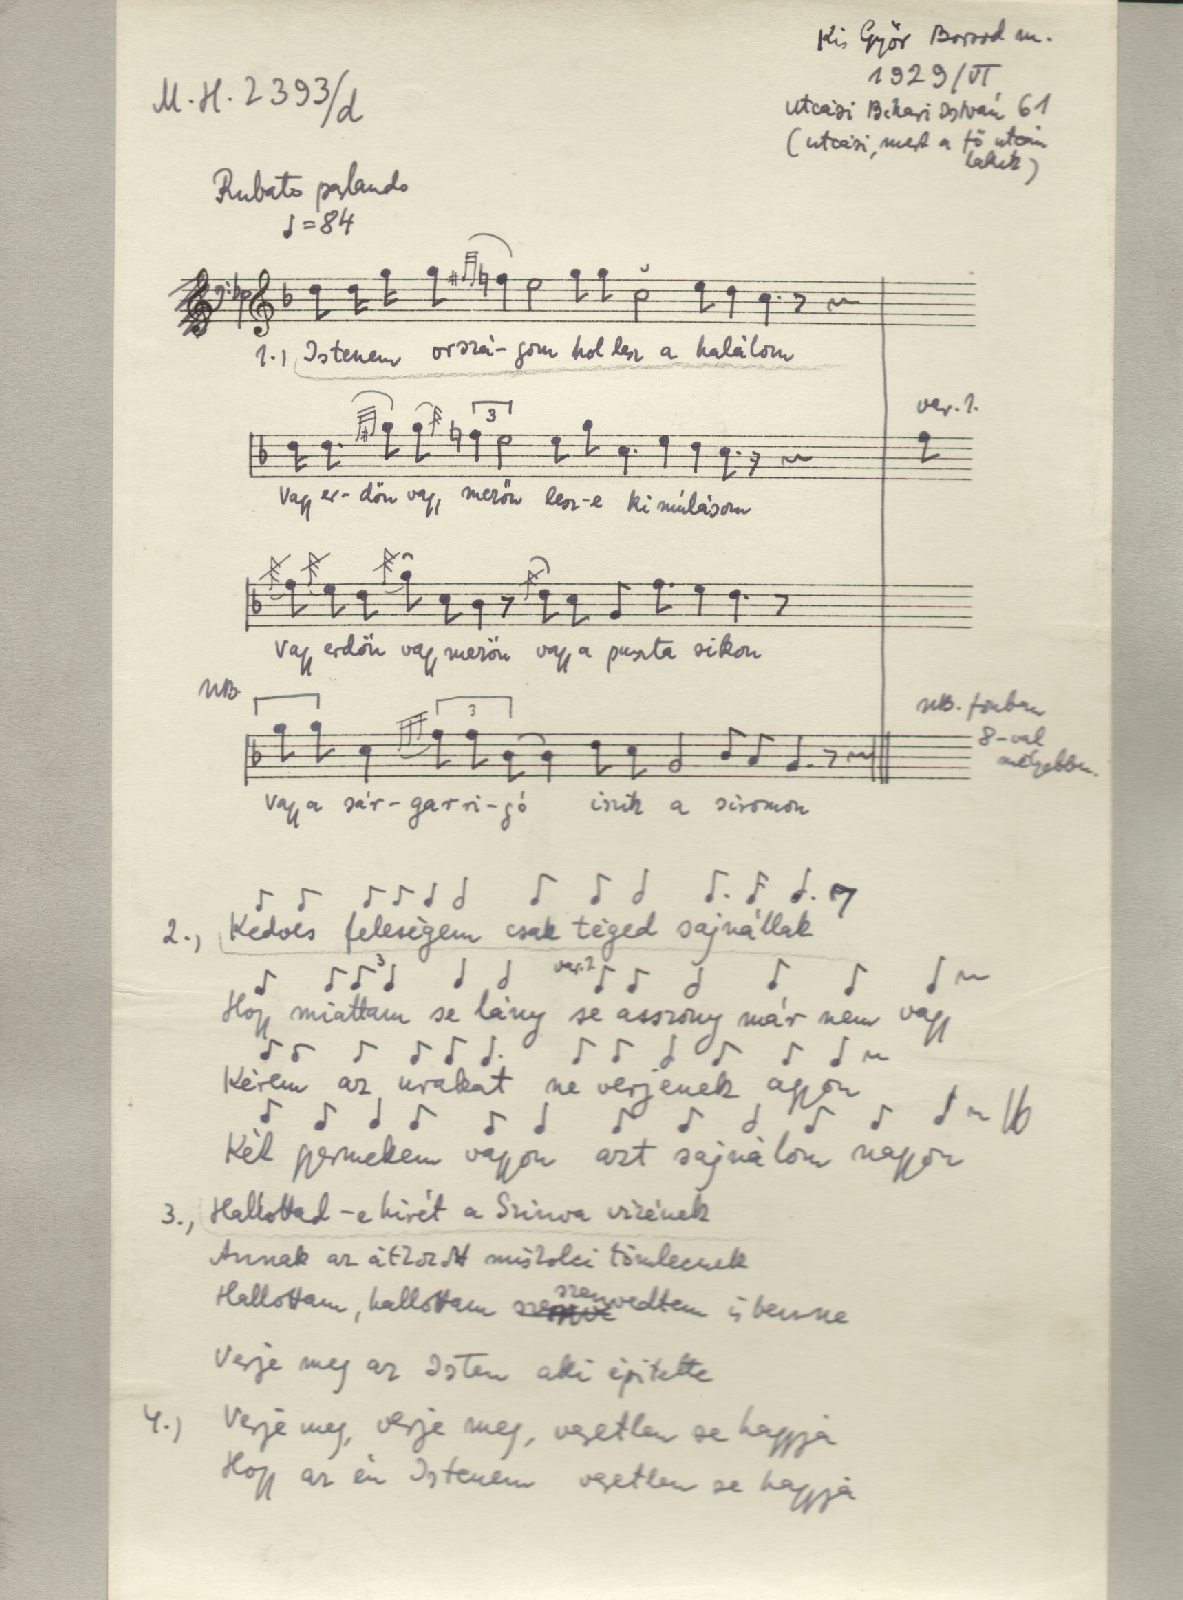 M.H. 2393/d
Kis Győr Borsod m.
1929/VI
utcási Bihari István 61
(utcási, mert a fő utcán
lakik)
Rubato parlando
♩=84
1., Istenem orszá-gom hol lesz a halálom
var. 1.
3
Vagy er-dőn vagy mezőn lesz-e ki múlásom
Vagy erdőn vagy mezőn vagy a puszta síkon
NB
3
NB. fonban
8-val
mélyebben.
Vagy a sár-gar-ri-gó iszik a siromon
2., Kedves feleségem csak téged sajnállak
3
var. 1
Hogy miattam se lány se asszony már nem vagy
Kérem az urakat ne verjenek agyon
Két gyermekem vagyon azt sajnálom nagyon
3., Hallottad-e hirét a Szinva vizének
Annak az átkozott miskolci tömlecnek
Hallottam, hallottam szenvedtem is benne
Verje meg az Isten aki épitette
4., Verje meg, verje meg, veretlen se hagyja
Hogy az én Istenem veretlen se hagyja